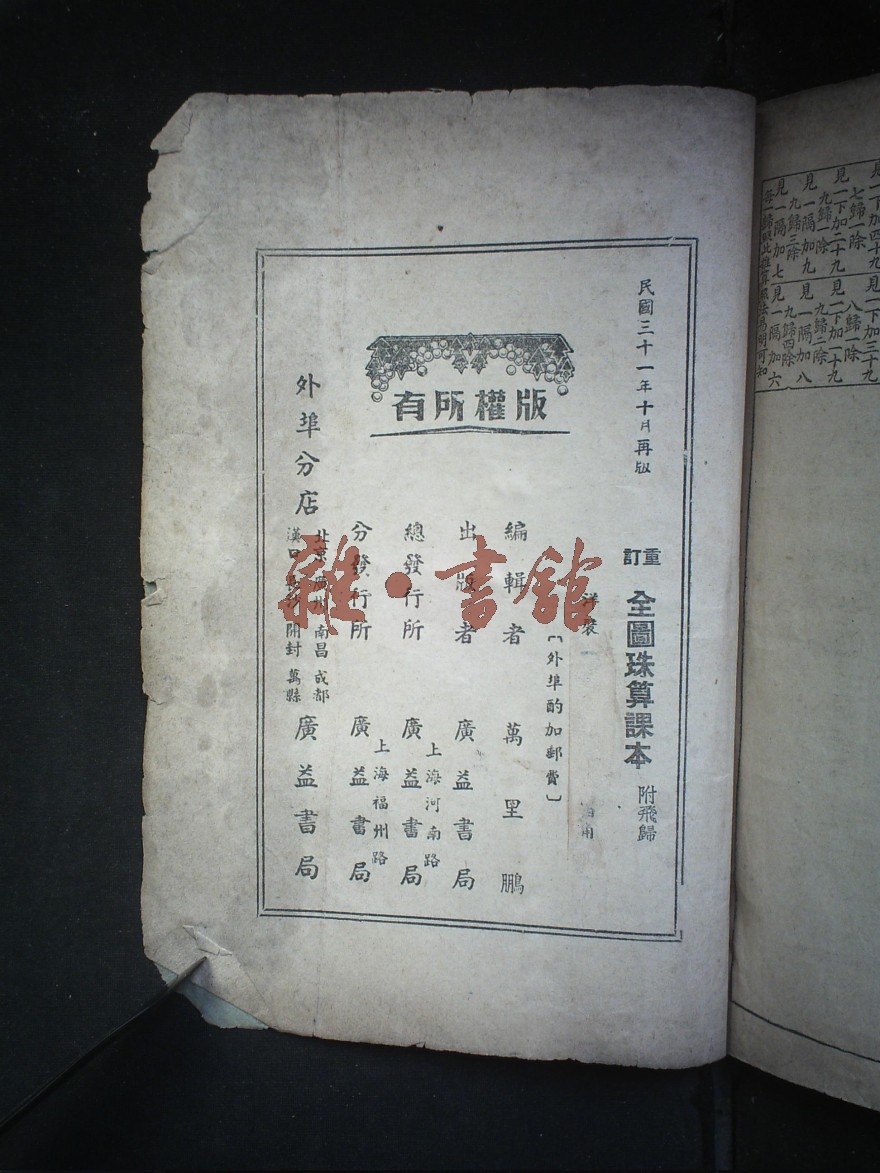 民國三十一年十月再版
版權所有
重訂 全圖珠算課本 附飛歸
〔外埠酌加郵費〕
編輯者 萬里鵬
出版者 廣益書局
總發行所 上海河南路 廣益書局
分發行所 上海福州路 廣益書局
外埠分店 北京 廣州 南昌 成都 漢口 長沙 開封 萬縣 廣益書局
雜·書館
見一下加四十九
七歸一除
見一下加二十九
九歸一除
見一隔加九
九歸三除
見一隔加七
見一下加三十九
八歸一除
見一下加一十九
九歸二除
見一隔加八
九歸四除
見一隔加六